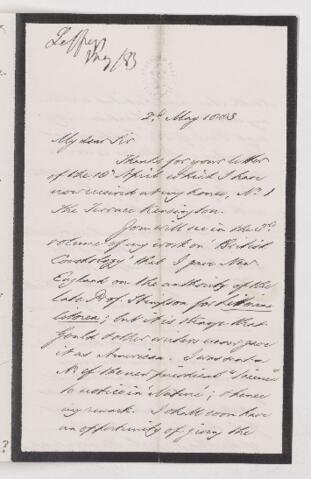 Jeffreys
May /83
2d. May 1883
My dear Sir
Thanks for your letter
of the 16th April which I have
now received at my home, No. 1
The Terrace Kensington.
You will see in the 3rd
volume of my work on 'British
Conchology' that I gave New
England on the authority of the
late Prof. Stimpson for Littorina
litorea; but it is strange that
Gould & other writers never gave
it as American. I was sent a
No. of the new periodical "Science"
to notice in 'Nature'; & hence
my remark. I shall soon have
an opportunity of giving the